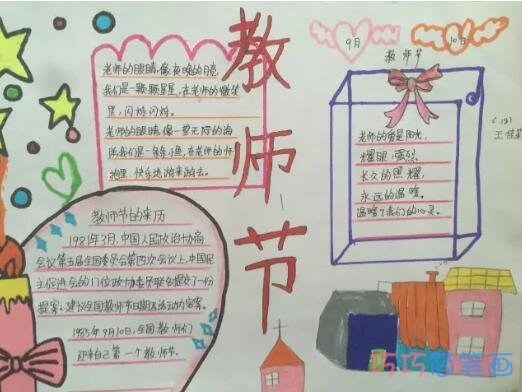 教师节
9月
10日
教师节
老师的眼睛,像夜晚的月亮,
我们是一颗颗星星,在老师的微笑
里,闪烁闪烁。
老师的眼睛,像一望无际的海
洋我们是一条条小鱼,在老师的怀
抱里,快乐地游来游去。
老师的爱是阳光,
耀眼,强烈。
长久的照耀,
永远的温暖。
温暖了我们的心灵。
教师节的来历
1981年3月,中国人民政治协商
会议第五届全国委员会第四次会议上,中国民
主促进会的门位政协委员联名提交了一份
提案:建议全国教师节日期及活动的答案。
1985年9月10日,全国教师们
迎来自己第一个教师节。
巧巧简笔画